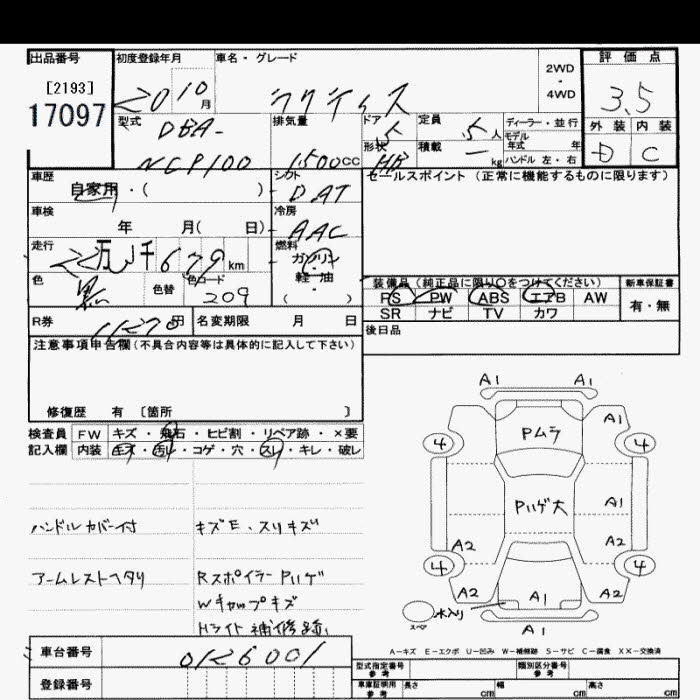 出品番号
[2193]
17097
初度登録年月
2010月
車名・グレード
ラクティス
2WD
・
4WD
評価点
3.5
外装 内装
D C
型式
DBA-
NCP100
排気量
1500cc
ドア
5
形状
HB
定員
5人
積載
ー kg
ディーラー・並行
モデル
年式 年
ハンドル 左・右
車歴
自家用・( )
シフト
DAT
セールスポイント(正常に機能するものに限ります)
車検
年 月( 日)
冷房
AAC
走行
万 千679km
燃料
ガソリン
・
軽・油
( )
色
色替
色コード
209
装備品(純正品に限り○をつけてください)
PS PW ABS エアB AW
SR ナビ TV カワ
新車保証書
有・無
R券
11270円
名変期限 月 日
後日品
注意事項申告欄(不具合内容等は具体的に記入して下さい)
修復歴 有 〔箇所 〕
検査員 FW キズ・飛石・ヒビ割・リペア跡・×要
記入欄 内装 キズ・汚レ・コゲ・穴・スレ・キレ・破レ
ハンドルカバー付
キズE、スリキズ
アームレストヘタリ
RスポイラーPハゲ
Wキャップキズ
Hライト補修跡
A1 A1
Pムラ
A1
4 4
Pハゲ大
A1
A2 A2
4 4
A2 A1 A2
水入り
スペア
A1
A-キズ E-エクボ U-凹み W-補修跡 S-サビ C-腐食 XX-交換済
車台番号
0126001
登録番号
型式指定番号
参考
類別区分番号
参考
車庫証明用
参考
長さ cm
幅 cm
高さ cm